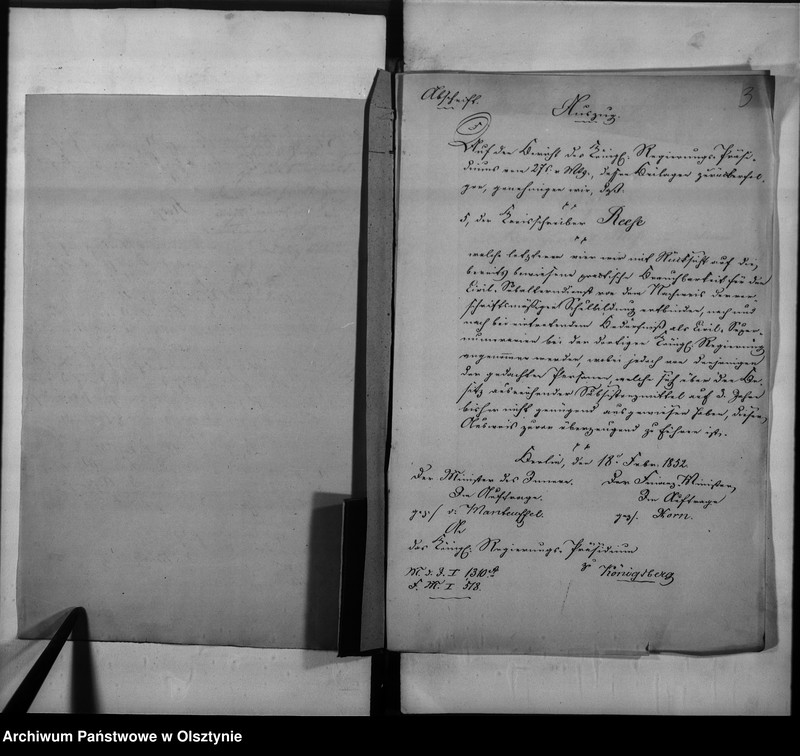 Abschrift.
3
Auszug.
Auf den Bericht des Königl. Regierungs-Präsi-
diums vom 27t. v. Mts., dessen Beilagen zurückerfol-
gen, genehmigen wir, daß
pp
5, der Kreisschreiber Reese
pp
welche letztern vier wir mit Rücksicht auf die
bereits bewiesene praktische Brauchbarkeit für den
Civil-Subalterndienst von dem Nachweis der vor-
schriftsmäßigen Schulbildung entbinden, nach und
nach bei eintretendem Bedürfniß als Civil-Super-
numerarien bei der dortigen Königl. Regierung
angenommen werden, wobei jedoch von denjenigen
der gedachten Personen, welche sich über den Be-
sitz ausreichender Subsistenzmittel auf 3 Jahre
bisher nicht genügend ausgewiesen haben, dieser
Ausweis zuvor überzeugend zu führen ist.
pp
Berlin, den 18t Febr. 1852.
Der Minister des Innern. Der Finanz-Minister,
Im Auftrage. Im Auftrage
gez. v. Manteuffel. gez. Horn.
An
das Königl. Regierungs-Präsidium
Königsberg
M. d. I. I 1310
F. M. I 518.
Archiwum Państwowe w Olsztynie